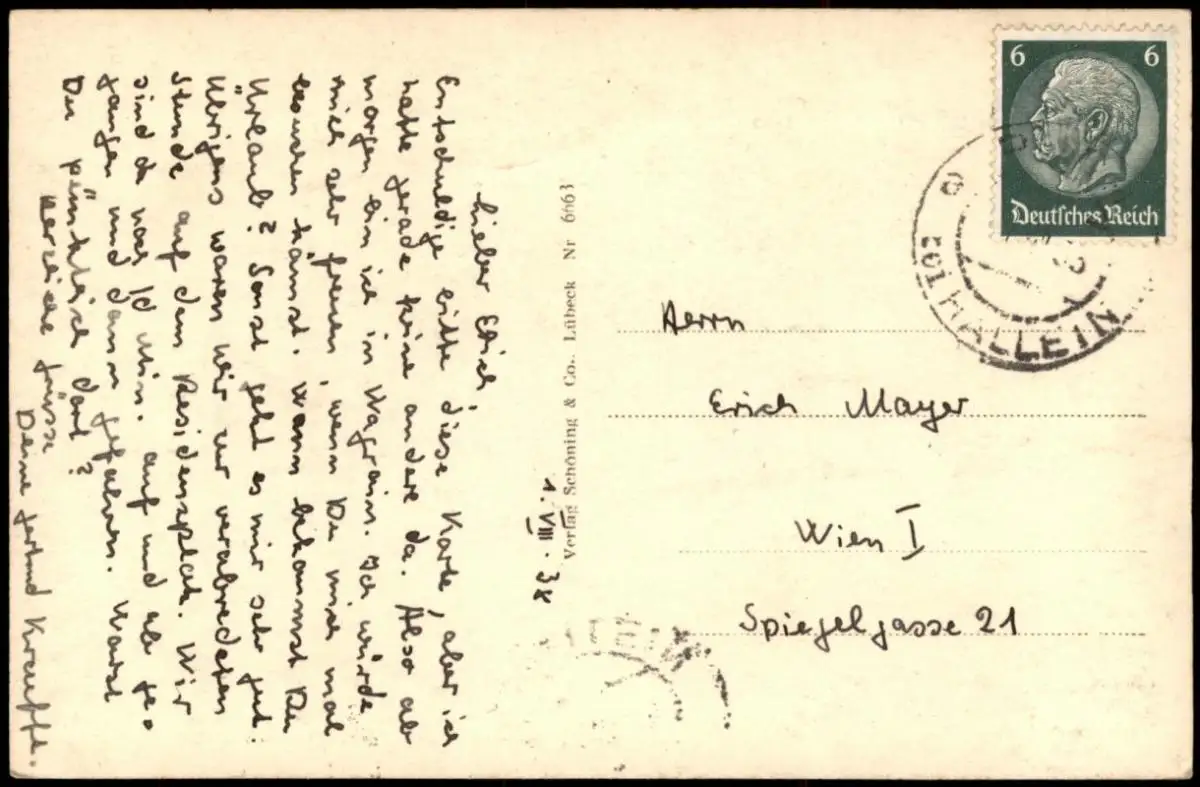 Lieber Erich,
Entschuldige bitte diese Karte, aber ich
hatte gerade keine andere da. Also ab
morgen bin ich in Wagrain. Ich würde
mich sehr freuen, wenn Du mich mal
besuchen kämst. Wann bekommst Du
Urlaub? Sonst geht es mir sehr gut.
Übrigens waren wir zur verabredeten
Stunde auf dem Residenzplatz. Wir
sind da noch 10 Min. auf und ab ge-
gangen und dann gefahren. Warst
Du pünktlich dort?
Herzliche Grüsse
Deine
1. VIII. 38
Verlag Schöning & Co. Lübeck Nr 6663
6 6
Deutsches Reich
HALLEIN
Herrn
Erich Mayer
Wien I
Spiegelgasse 21